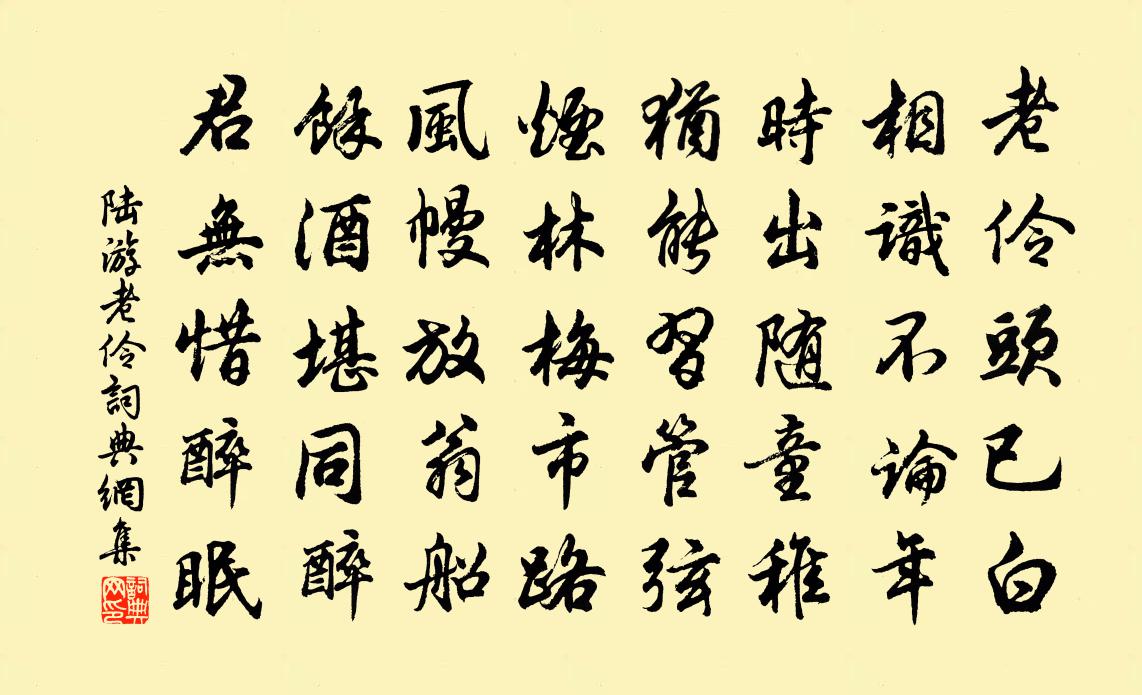 老伶頭已白
相識不論年
時出随童稚
猶能習管弦
煙林梅市路
風幔放翁船
餘酒堪同醉
君無惜醉眠
陸游老伶詞典網集
詞典網印